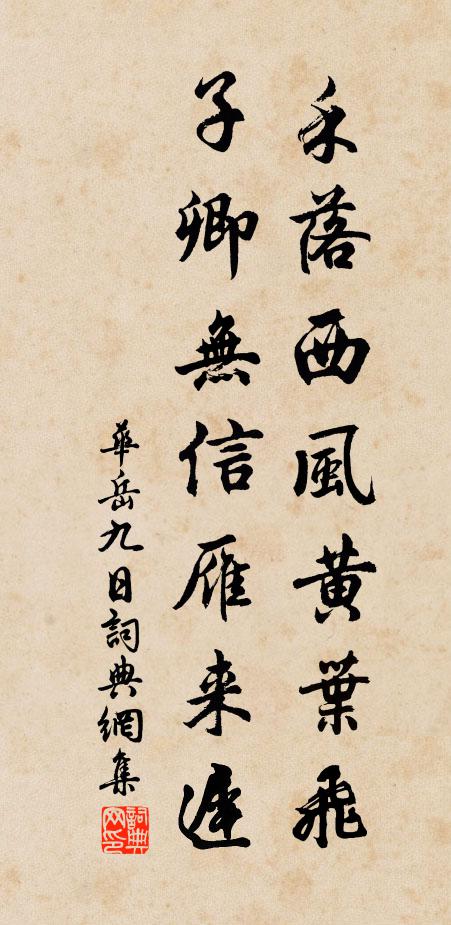 禾落西風黄葉飛
子卿無信雁来遲
華岳九日詞典網集
詞典
网印